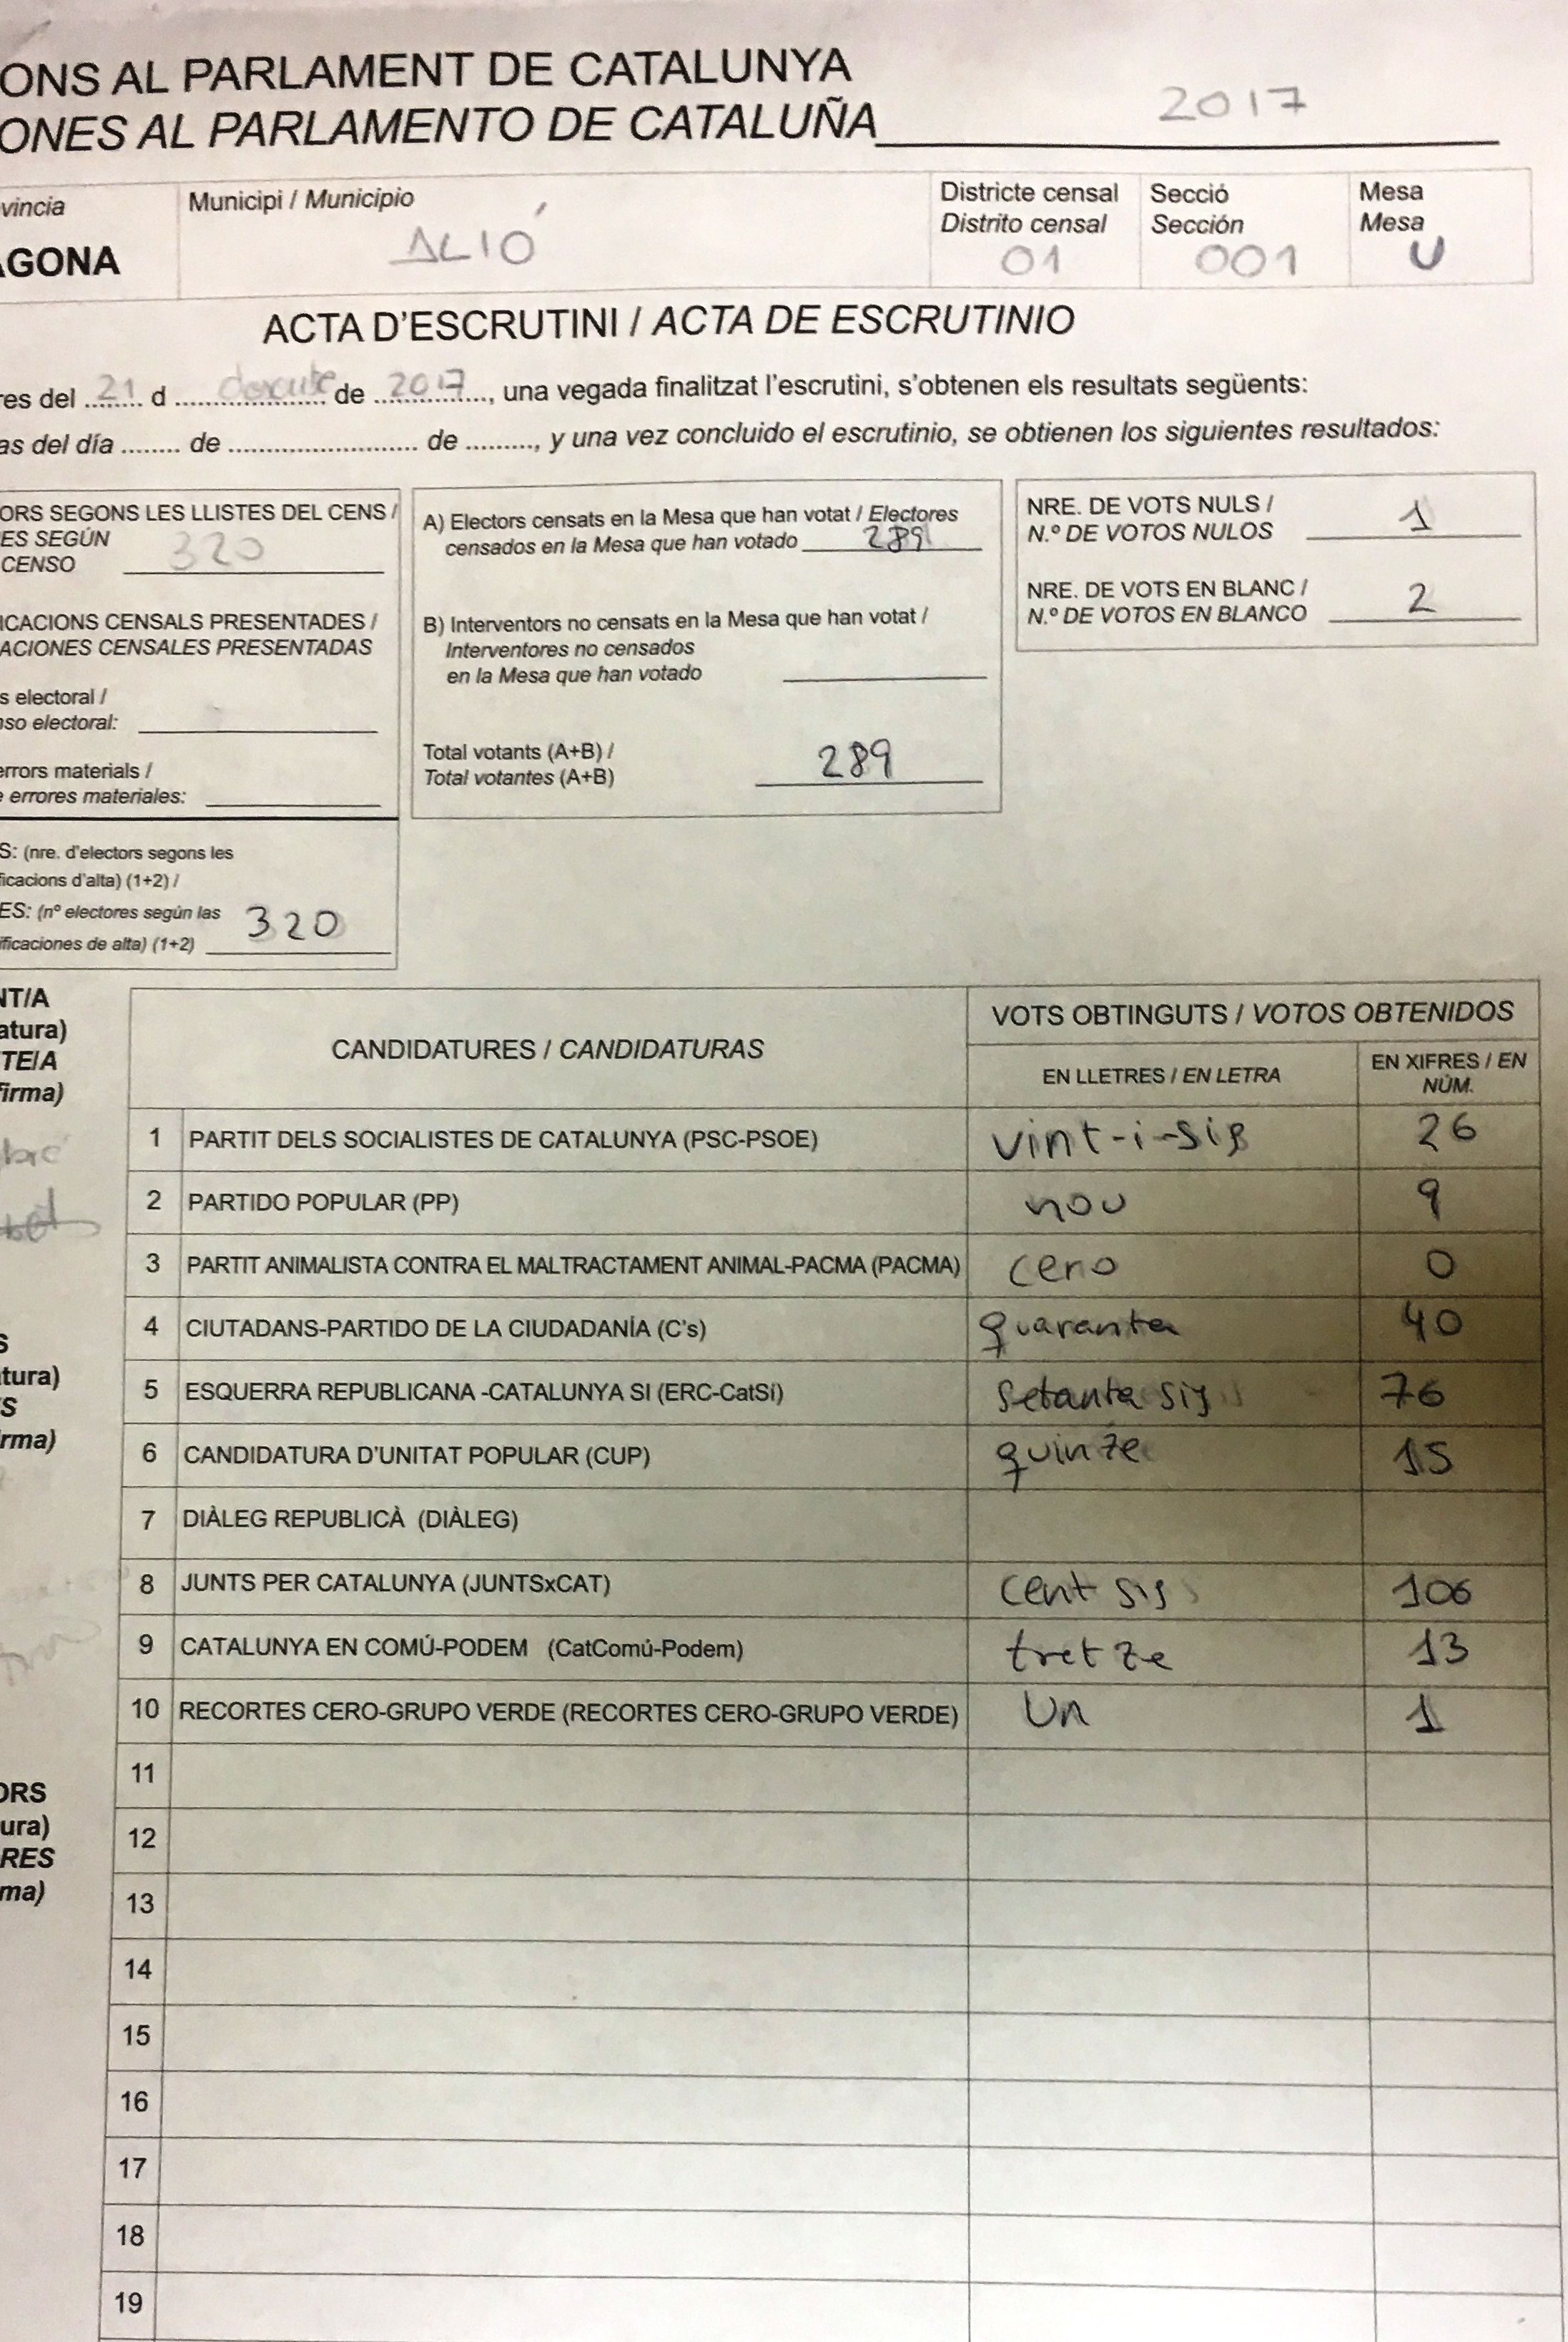 ONS AL PARLAMENT DE CATALUNYA
ONES AL PARLAMENTO DE CATALUÑA 2017
vincia
AGONA
Municipi / Municipio
ALIÓ
Districte censal
Distrito censal
01
Secció
Sección
001
Mesa
Mesa
U
ACTA D'ESCRUTINI / ACTA DE ESCRUTINIO
res del 21 d de 2017, una vegada finalitzat l'escrutini, s'obtenen els resultats següents:
as del día ........ de .................... de ........., y una vez concluido el escrutinio, se obtienen los siguientes resultados:
ORS SEGONS LES LLISTES DEL CENS /
ES SEGÚN
CENSO 320
ICACIONS CENSALS PRESENTADES /
ACIONES CENSALES PRESENTADAS
s electoral /
so electoral:
errors materials /
e errores materiales:
S: (nre. d'electors segons les
ficacions d'alta) (1+2) /
ES: (nº electores según las
ificaciones de alta) (1+2) 320
A) Electors censats en la Mesa que han votat / Electores
censados en la Mesa que han votado 289
B) Interventors no censats en la Mesa que han votat /
Interventores no censados
en la Mesa que han votado
Total votants (A+B) /
Total votantes (A+B) 289
NRE. DE VOTS NULS /
N.º DE VOTOS NULOS 1
NRE. DE VOTS EN BLANC /
N.º DE VOTOS EN BLANCO 2
NT/A
atura)
TE/A
firma)
S
atura)
S
rma)
ORS
ura)
RES
ma)
CANDIDATURES / CANDIDATURAS
VOTS OBTINGUTS / VOTOS OBTENIDOS
EN LLETRES / EN LETRA
EN XIFRES / EN
NÚM.
1 PARTIT DELS SOCIALISTES DE CATALUNYA (PSC-PSOE) vint-i-sis 26
2 PARTIDO POPULAR (PP) nou 9
3 PARTIT ANIMALISTA CONTRA EL MALTRACTAMENT ANIMAL-PACMA (PACMA) cero 0
4 CIUTADANS-PARTIDO DE LA CIUDADANÍA (C's) quaranta 40
5 ESQUERRA REPUBLICANA -CATALUNYA SI (ERC-CatSí) setanta sis 76
6 CANDIDATURA D'UNITAT POPULAR (CUP) quinze 15
7 DIÀLEG REPUBLICÀ (DIÀLEG)
8 JUNTS PER CATALUNYA (JUNTSxCAT) cent sis 106
9 CATALUNYA EN COMÚ-PODEM (CatComú-Podem) tretze 13
10 RECORTES CERO-GRUPO VERDE (RECORTES CERO-GRUPO VERDE) Un 1
11
12
13
14
15
16
17
18
19